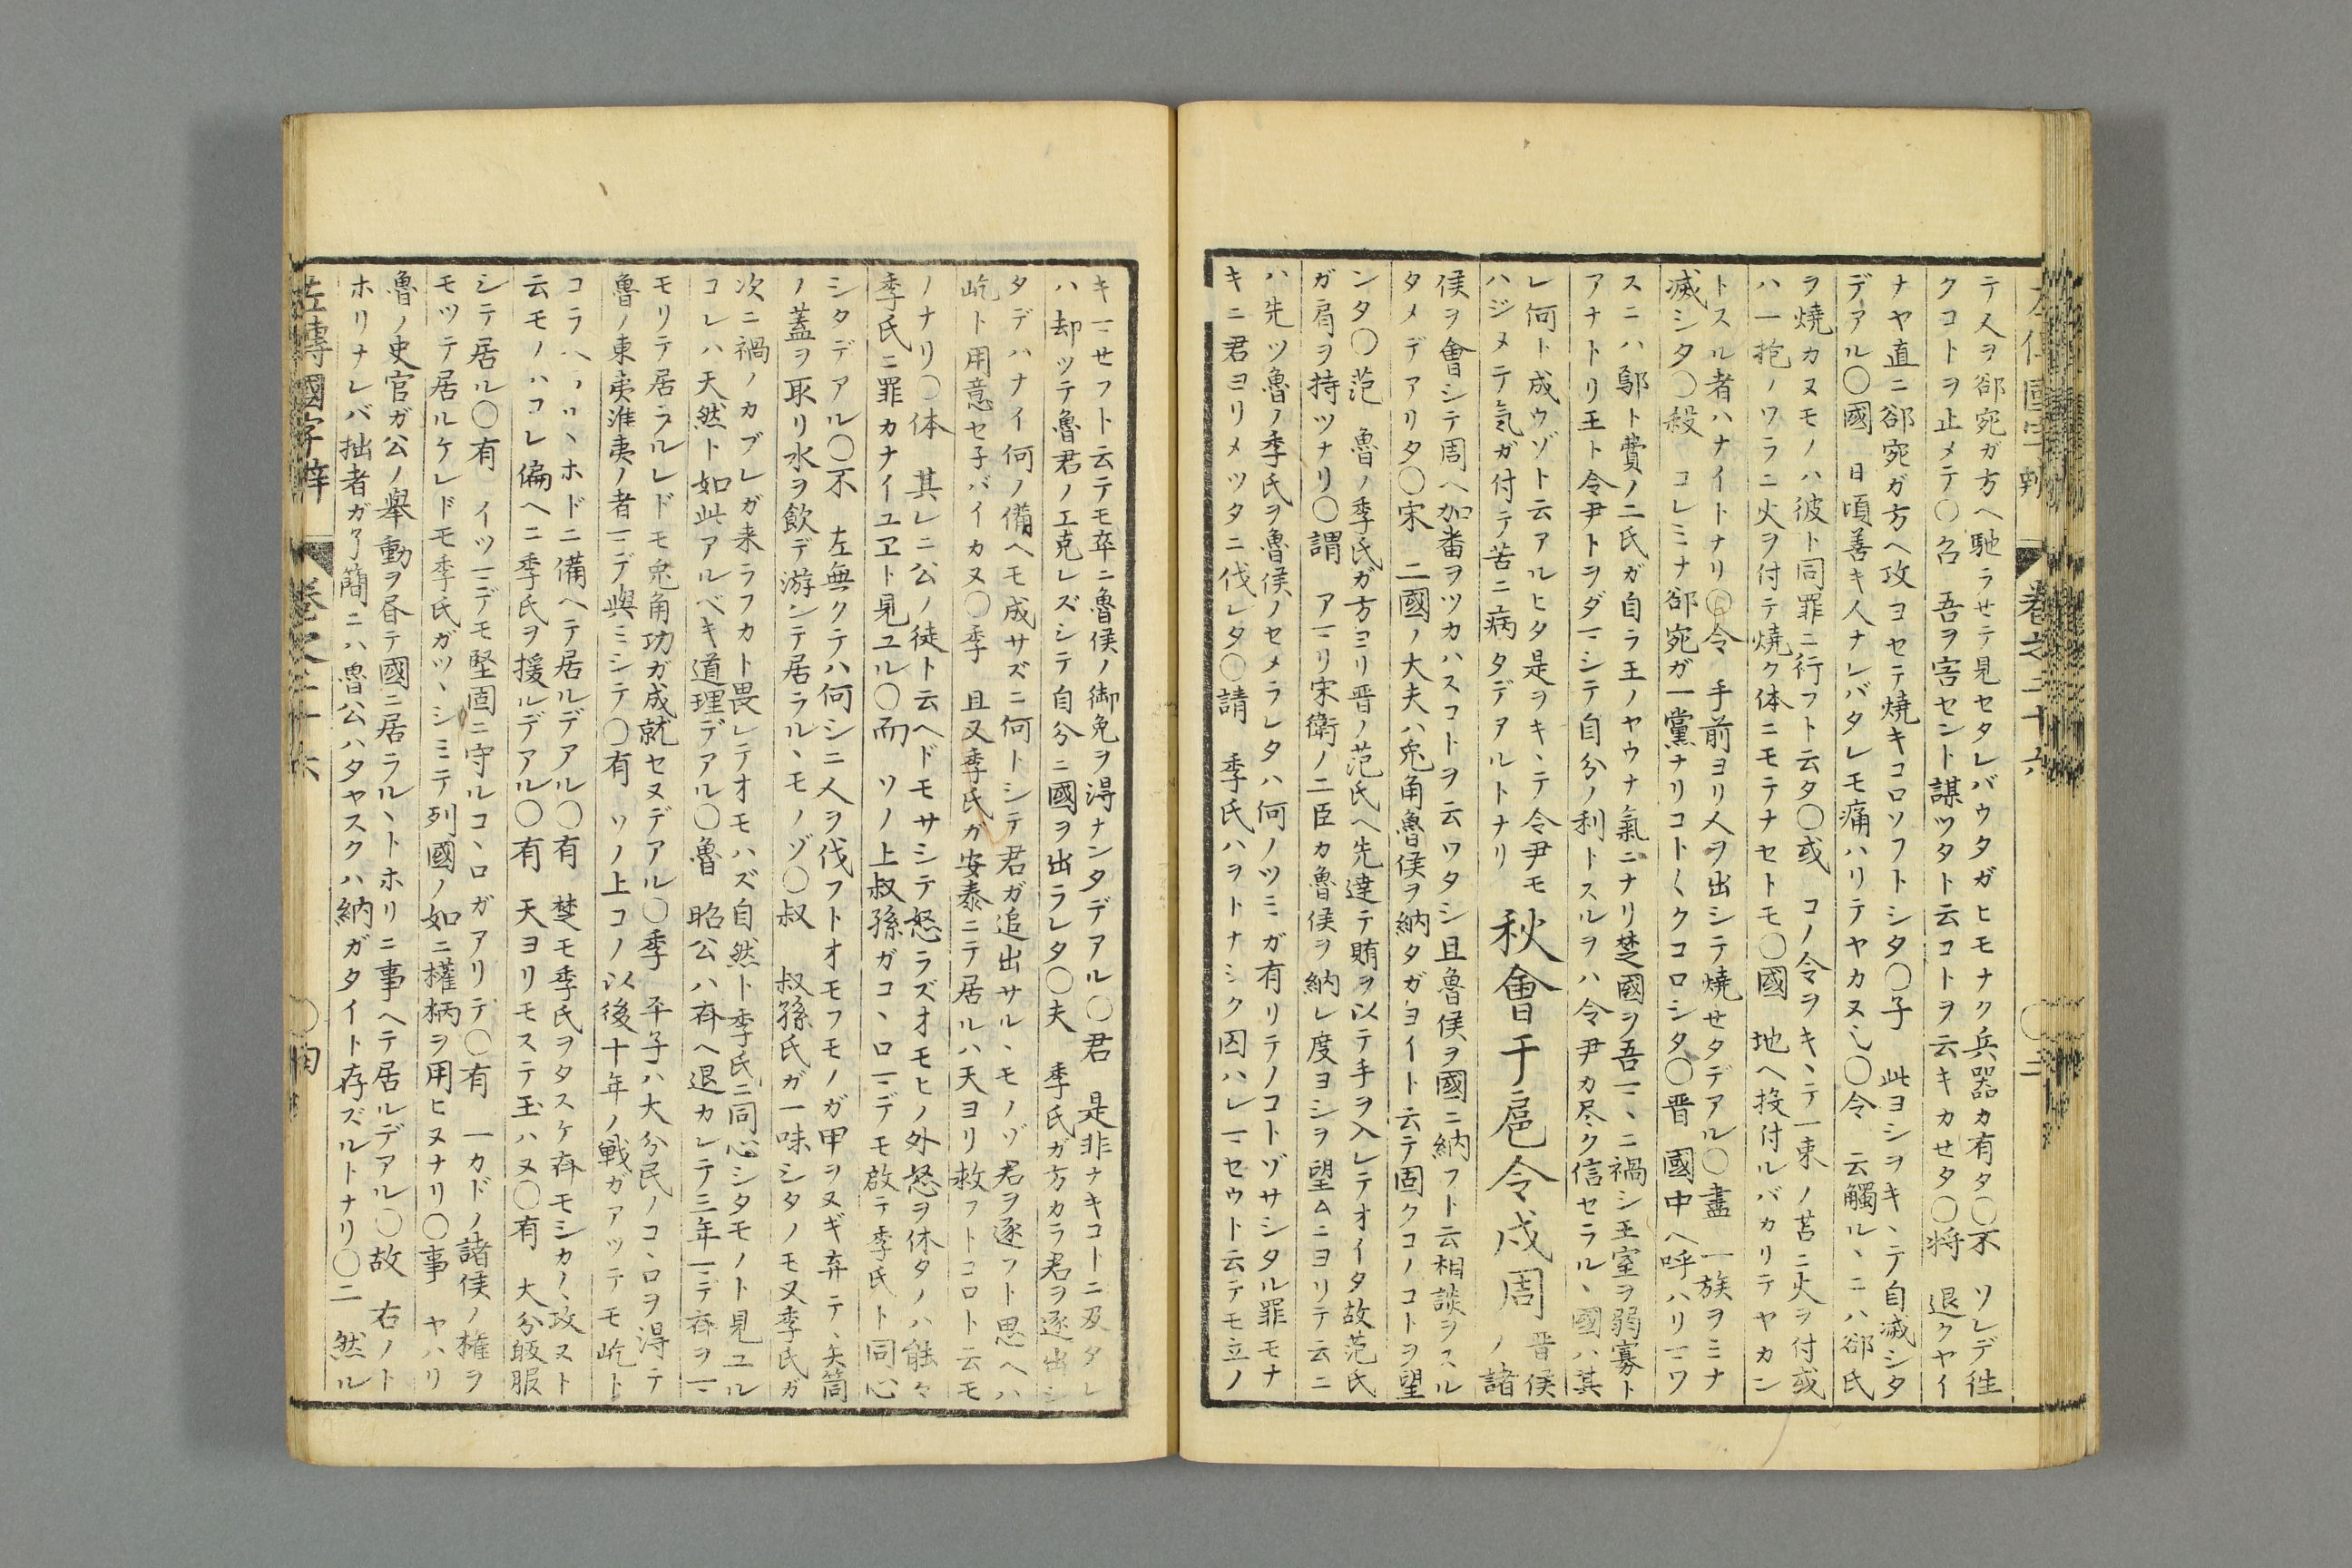 テ人ヲ郤宛ガ方ヘ馳ラセテ見セタレバウタガヒモナク兵器カ有タ〇不 ソレデ往
クコトヲ止メテ〇召 吾ヲ害セント謀ツタト云コトヲ云キカセタ〇將 退クヤイ
ナヤ直ニ郤宛ガ方ヘ攻ヨセテ焼キコロソフトシタ〇子 此ヨシヲキヽテ自滅シタ
デアル〇國 日頃善キ人ナレバタレモ痛ハリテヤカヌ〇令 云觸ルヽニハ郤氏
ヲ燒カヌモノハ彼ト同罪ニ行フト云タ〇或 コノ令ヲキヽテ一束ノ苫ニ火ヲ付或
ハ一抱ノワラニ火ヲ付テ燒ク体ニモテナセトモ〇國 地ヘ投付ルバカリテヤカン
トスル者ハナイトナリ〇令 手前ヨリ人ヲ出シテ燒セタデアル〇盡 一族ヲミナ
滅シタ〇殺 コレミナ郤宛ガ一黨ナリコト〱クコロシタ〇晋 國中ヘ呼ハリマワ
スニハ鄢ト費ノ二氏ガ自ラ王ノヤウナ氣ニナリ楚國ヲ吾マヽニ禍シ王室ヲ弱寡ト
アナトリ王ト令尹トヲダマシテ自分ノ利トスルヲハ令尹カ尽ク信セラルヽ國ハ其
レ何ト成ウゾト云アルヒタ是ヲキヽテ令尹モ
ハジメテ氣ガ付テ苦ニ病タデアルトナリ
秋會于扈令戍周
晋侯
ノ諸
侯ヲ會シテ周ヘ加番ヲツカハスコトヲ云ワタシ且魯侯ヲ國ニ納フト云相談ヲスル
タメデアリタ〇宋 二國ノ大夫ハ兎角魯侯ヲ納タガヨイト云テ固クコノコトヲ望
ンタ〇范 魯ノ季氏ガ方ヨリ晋ノ范氏ヘ先達テ賄ヲ以テ手ヲ入レテオイタ故范氏
ガ肩ヲ持ツナリ〇謂 アマリ宋衛ノ二臣カ魯侯ヲ納レ度ヨシヲ望ムニヨリテ云ニ
ハ先ツ魯ノ季氏ヲ魯侯ノセメラレタハ何ノツミガ有リテノコトゾサシタル罪モナ
キニ君ヨリメツタニ伐レタ〇請 季氏ハヲトナシク囚ハレマセウト云テモ立ノ
キマセフト云テモ卒ニ魯侯ノ御免ヲ得ナンタデアル〇君 是非ナキコトニ及タレ
ハ却ツテ魯君ノエ克レズシテ自分ニ國ヲ出ラレタ〇夫 季氏ガ方カラ君ヲ逐出シ
タデハナイ何ノ備ヘモ成サズニ何トシテ君ガ追出サルヽモノゾ君ヲ逐フト思ヘハ
屹ト用意セ子バイカヌ〇季 且又季氏ガ安泰ニテ居ルハ天ヨリ救フトコロト云モ
ノナリ〇体 其レニ公ノ徒ト云ヘドモサシテ怒ラズオモヒノ外怒ヲ休タノハ能々
季氏ニ罪カナイユヱト見ユル〇而 ソノ上叔孫ガコヽロマデモ啟テ季氏ト同心
シタデアル〇不 左無クテハ何シニ人ヲ伐フトオモフモノガ甲ヲヌギ弃テヽ矢筒
ノ蓋ヲ取リ水ヲ飲デ游ンテ居ラルヽモノゾ〇叔 叔孫氏ガ一味シタノモ又季氏ガ
次ニ禍ノカブレガ来ラフカト畏レテオモハズ自然ト季氏ニ同心シタモノト見ユル
コレハ天然ト如此アルベキ道理デアル〇魯 昭公ハ斉ヘ退カレテ三年マデ斉ヲマ
モリテ居ラルレドモ兎角功ガ成就セヌデアル〇季 平子ハ大分民ノコヽロヲ得テ
魯ノ東夷淮夷ノ者マデ與ミシテ〇有 ソノ上コノ以後十年ノ戦ガアツテモ屹ト
コラヘラルヽホドニ備ヘテ居ルデアル〇有 楚モ季氏ヲタスケ斉モシカノヽ攻ヌト
云モノハコレ偏ヘニ季氏ヲ援ルデアル〇有 天ヨリモステ玉ハヌ〇有 大分皈服
シテ居ル〇有 イツマデモ堅固ニ守ルコヽロガアリテ〇有 一カドノ諸侯ノ権ヲ
モツテ居ルケレドモ季氏ガツヽシミテ列國ノ如ニ權柄ヲ用ヒヌナリ〇事 ヤハリ
魯ノ史官ガ公ノ舉動ヲ昏テ國ニ居ラルヽトホリニ事ヘテ居ルデアル〇故 右ノト
ホリナレバ拙者ガ了簡ニハ魯公ハタヤスクハ納ガタイト存ズルトナリ〇二 然ル
左傳國字辯 卷之二十六